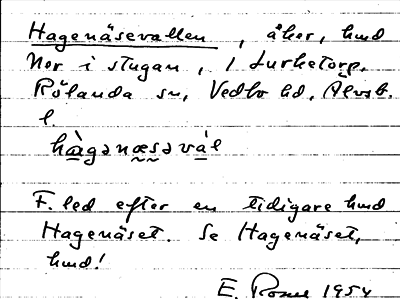 Hagenäsevallen, åker, hmd
Nor i stugan, 1 Lurketorp,
Rölanda sn, Vedbo hd, Älvsb.
l.
hàgənæsəvál
F. led efter en tidigare hmd
Hagenäset. Se Hagenäset,
hmd!
E. 1954